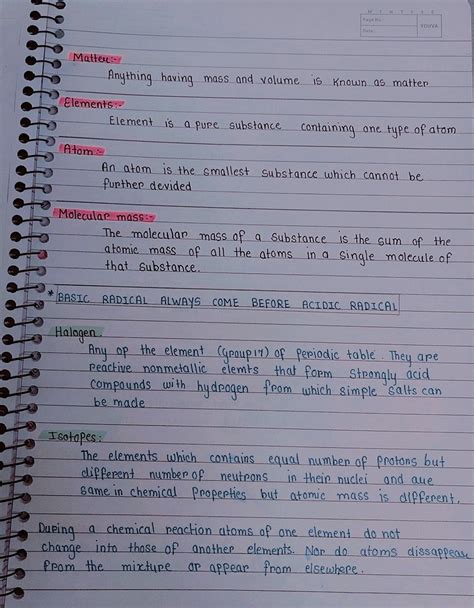 M T W T F S S
Page No.:
Date:
YOUVA
Matter:-
Anything having mass and volume is known as matter
Elements:-
Element is a pure substance containing one type of atom
Atom:-
An atom is the smallest substance which cannot be
further devided
Molecular mass:-
The molecular mass of a substance is the sum of the
atomic mass of all the atoms in a single molecule of
that substance.
* BASIC RADICAL ALWAYS COME BEFORE ACIDIC RADICAL
Halogen.
Any of the element (group 17) of periodic table. They are
reactive nonmetallic elemts that form strongly acid
compounds with hydrogen from which simple salts can
be made
Isotopes:
The elements which contains equal number of protons but
different number of neutrons in their nuclei and are
same in chemical properties but atomic mass is different.
During a chemical reaction atoms of one element do not
change into those of another elements. Nor do atoms dissappear
from the mixture or appear from elsewhere.